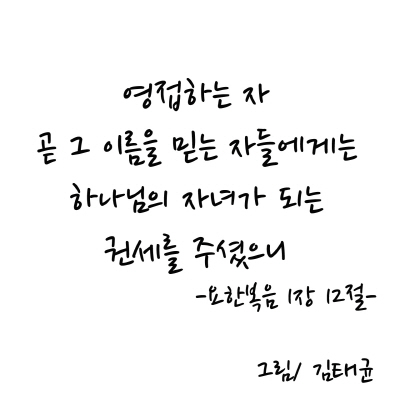 영접하는 자
곧 그 이름을 믿는 자들에게는
하나님의 자녀가 되는
권세를 주셨으니
-요한복음 1장 12절-
그림/ 김태균